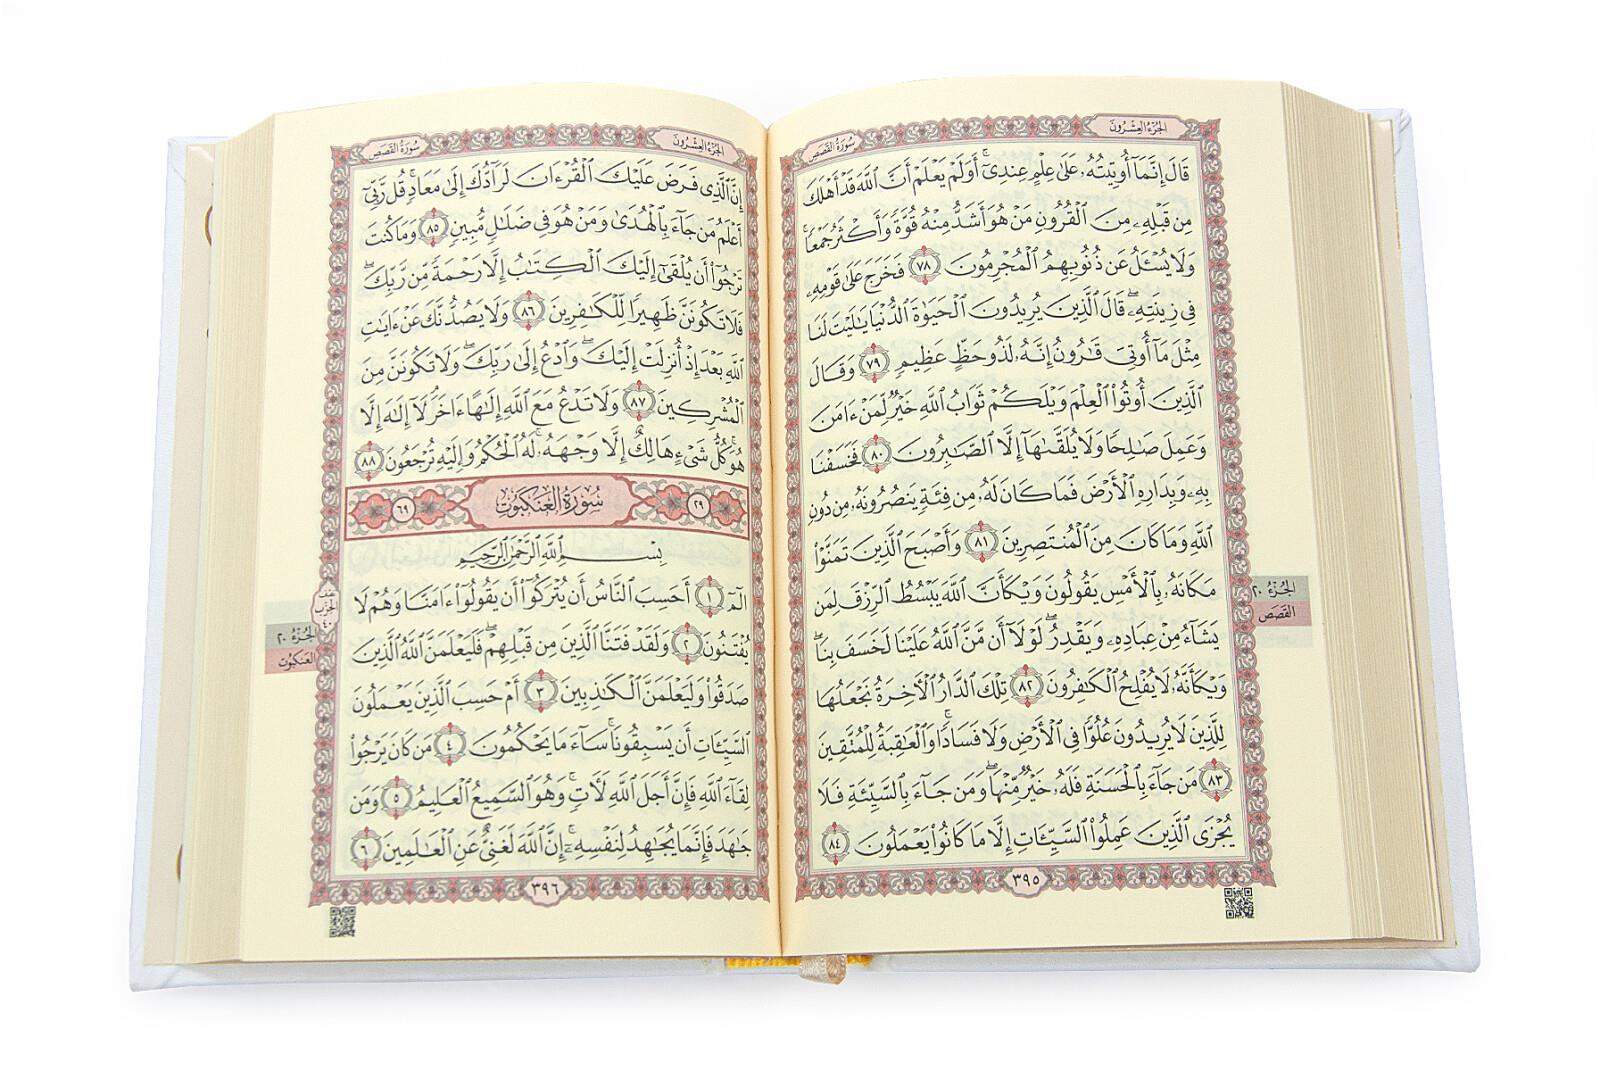 سُورَةُ القَصَصِ
الجُزءُ العِشْرُونَ
قَالَ إِنَّمَآ أُوتِيتُهُۥ عَلَىٰ عِلْمٍ عِندِىٓ ۚ أَوَلَمْ يَعْلَمْ أَنَّ ٱللَّهَ قَدْ أَهْلَكَ
مِن قَبْلِهِۦ مِنَ ٱلْقُرُونِ مَنْ هُوَ أَشَدُّ مِنْهُ قُوَّةً وَأَكْثَرُ جَمْعًا ۚ
وَلَا يُسْـَٔلُ عَن ذُنُوبِهِمُ ٱلْمُجْرِمُونَ ٧٨ فَخَرَجَ عَلَىٰ قَوْمِهِۦ
فِى زِينَتِهِۦ ۖ قَالَ ٱلَّذِينَ يُرِيدُونَ ٱلْحَيَوٰةَ ٱلدُّنْيَا يَـٰلَيْتَ لَنَا
مِثْلَ مَآ أُوتِىَ قَـٰرُونُ إِنَّهُۥ لَذُو حَظٍّ عَظِيمٍ ٧٩ وَقَالَ
ٱلَّذِينَ أُوتُوا۟ ٱلْعِلْمَ وَيْلَكُمْ ثَوَابُ ٱللَّهِ خَيْرٌ لِّمَنْ ءَامَنَ
وَعَمِلَ صَـٰلِحًا وَلَا يُلَقَّىٰهَآ إِلَّا ٱلصَّـٰبِرُونَ ٨٠ فَخَسَفْنَا
بِهِۦ وَبِدَارِهِ ٱلْأَرْضَ فَمَا كَانَ لَهُۥ مِن فِئَةٍ يَنصُرُونَهُۥ مِن دُونِ
ٱللَّهِ وَمَا كَانَ مِنَ ٱلْمُنتَصِرِينَ ٨١ وَأَصْبَحَ ٱلَّذِينَ تَمَنَّوْا۟
مَكَانَهُۥ بِٱلْأَمْسِ يَقُولُونَ وَيْكَأَنَّ ٱللَّهَ يَبْسُطُ ٱلرِّزْقَ لِمَن
يَشَآءُ مِنْ عِبَادِهِۦ وَيَقْدِرُ ۖ لَوْلَآ أَن مَّنَّ ٱللَّهُ عَلَيْنَا لَخَسَفَ بِنَا ۖ
وَيْكَأَنَّهُۥ لَا يُفْلِحُ ٱلْكَـٰفِرُونَ ٨٢ تِلْكَ ٱلدَّارُ ٱلْـَٔاخِرَةُ نَجْعَلُهَا
لِلَّذِينَ لَا يُرِيدُونَ عُلُوًّا فِى ٱلْأَرْضِ وَلَا فَسَادًا ۚ وَٱلْعَـٰقِبَةُ لِلْمُتَّقِينَ
٨٣ مَن جَآءَ بِٱلْحَسَنَةِ فَلَهُۥ خَيْرٌ مِّنْهَا ۖ وَمَن جَآءَ بِٱلسَّيِّئَةِ فَلَا
يُجْزَى ٱلَّذِينَ عَمِلُوا۟ ٱلسَّيِّـَٔاتِ إِلَّا مَا كَانُوا۟ يَعْمَلُونَ ٨٤
٣٩٥
الجُزْءُ ٢٠
القَصَص
سُورَةُ القَصَصِ
الجُزءُ العِشْرُونَ
إِنَّ ٱلَّذِى فَرَضَ عَلَيْكَ ٱلْقُرْءَانَ لَرَآدُّكَ إِلَىٰ مَعَادٍ ۚ قُل رَّبِّىٓ
أَعْلَمُ مَن جَآءَ بِٱلْهُدَىٰ وَمَنْ هُوَ فِى ضَلَـٰلٍ مُّبِينٍ ٨٥ وَمَا كُنتَ
تَرْجُوٓا۟ أَن يُلْقَىٰٓ إِلَيْكَ ٱلْكِتَـٰبُ إِلَّا رَحْمَةً مِّن رَّبِّكَ ۖ
فَلَا تَكُونَنَّ ظَهِيرًا لِّلْكَـٰفِرِينَ ٨٦ وَلَا يَصُدُّنَّكَ عَنْ ءَايَـٰتِ
ٱللَّهِ بَعْدَ إِذْ أُنزِلَتْ إِلَيْكَ ۖ وَٱدْعُ إِلَىٰ رَبِّكَ ۖ وَلَا تَكُونَنَّ مِنَ
ٱلْمُشْرِكِينَ ٨٧ وَلَا تَدْعُ مَعَ ٱللَّهِ إِلَـٰهًا ءَاخَرَ ۘ لَآ إِلَـٰهَ إِلَّا
هُوَ ۚ كُلُّ شَىْءٍ هَالِكٌ إِلَّا وَجْهَهُۥ ۚ لَهُ ٱلْحُكْمُ وَإِلَيْهِ تُرْجَعُونَ ٨٨
٢٩ سُورَةُ العَنكَبُوتِ ٦٩
بِسْمِ ٱللَّهِ ٱلرَّحْمَـٰنِ ٱلرَّحِيمِ
الٓمٓ ١ أَحَسِبَ ٱلنَّاسُ أَن يُتْرَكُوٓا۟ أَن يَقُولُوٓا۟ ءَامَنَّا وَهُمْ لَا
يُفْتَنُونَ ٢ وَلَقَدْ فَتَنَّا ٱلَّذِينَ مِن قَبْلِهِمْ ۖ فَلَيَعْلَمَنَّ ٱللَّهُ ٱلَّذِينَ
صَدَقُوا۟ وَلَيَعْلَمَنَّ ٱلْكَـٰذِبِينَ ٣ أَمْ حَسِبَ ٱلَّذِينَ يَعْمَلُونَ
ٱلسَّيِّـَٔاتِ أَن يَسْبِقُونَا ۚ سَآءَ مَا يَحْكُمُونَ ٤ مَن كَانَ يَرْجُوا۟
لِقَآءَ ٱللَّهِ فَإِنَّ أَجَلَ ٱللَّهِ لَـَٔاتٍ ۚ وَهُوَ ٱلسَّمِيعُ ٱلْعَلِيمُ ٥ وَمَن
جَـٰهَدَ فَإِنَّمَا يُجَـٰهِدُ لِنَفْسِهِۦٓ ۚ إِنَّ ٱللَّهَ لَغَنِىٌّ عَنِ ٱلْعَـٰلَمِينَ ٦
٣٩٦
الحِزْب
٤٠
الجُزْءُ ٢٠
العَنكَبُوت